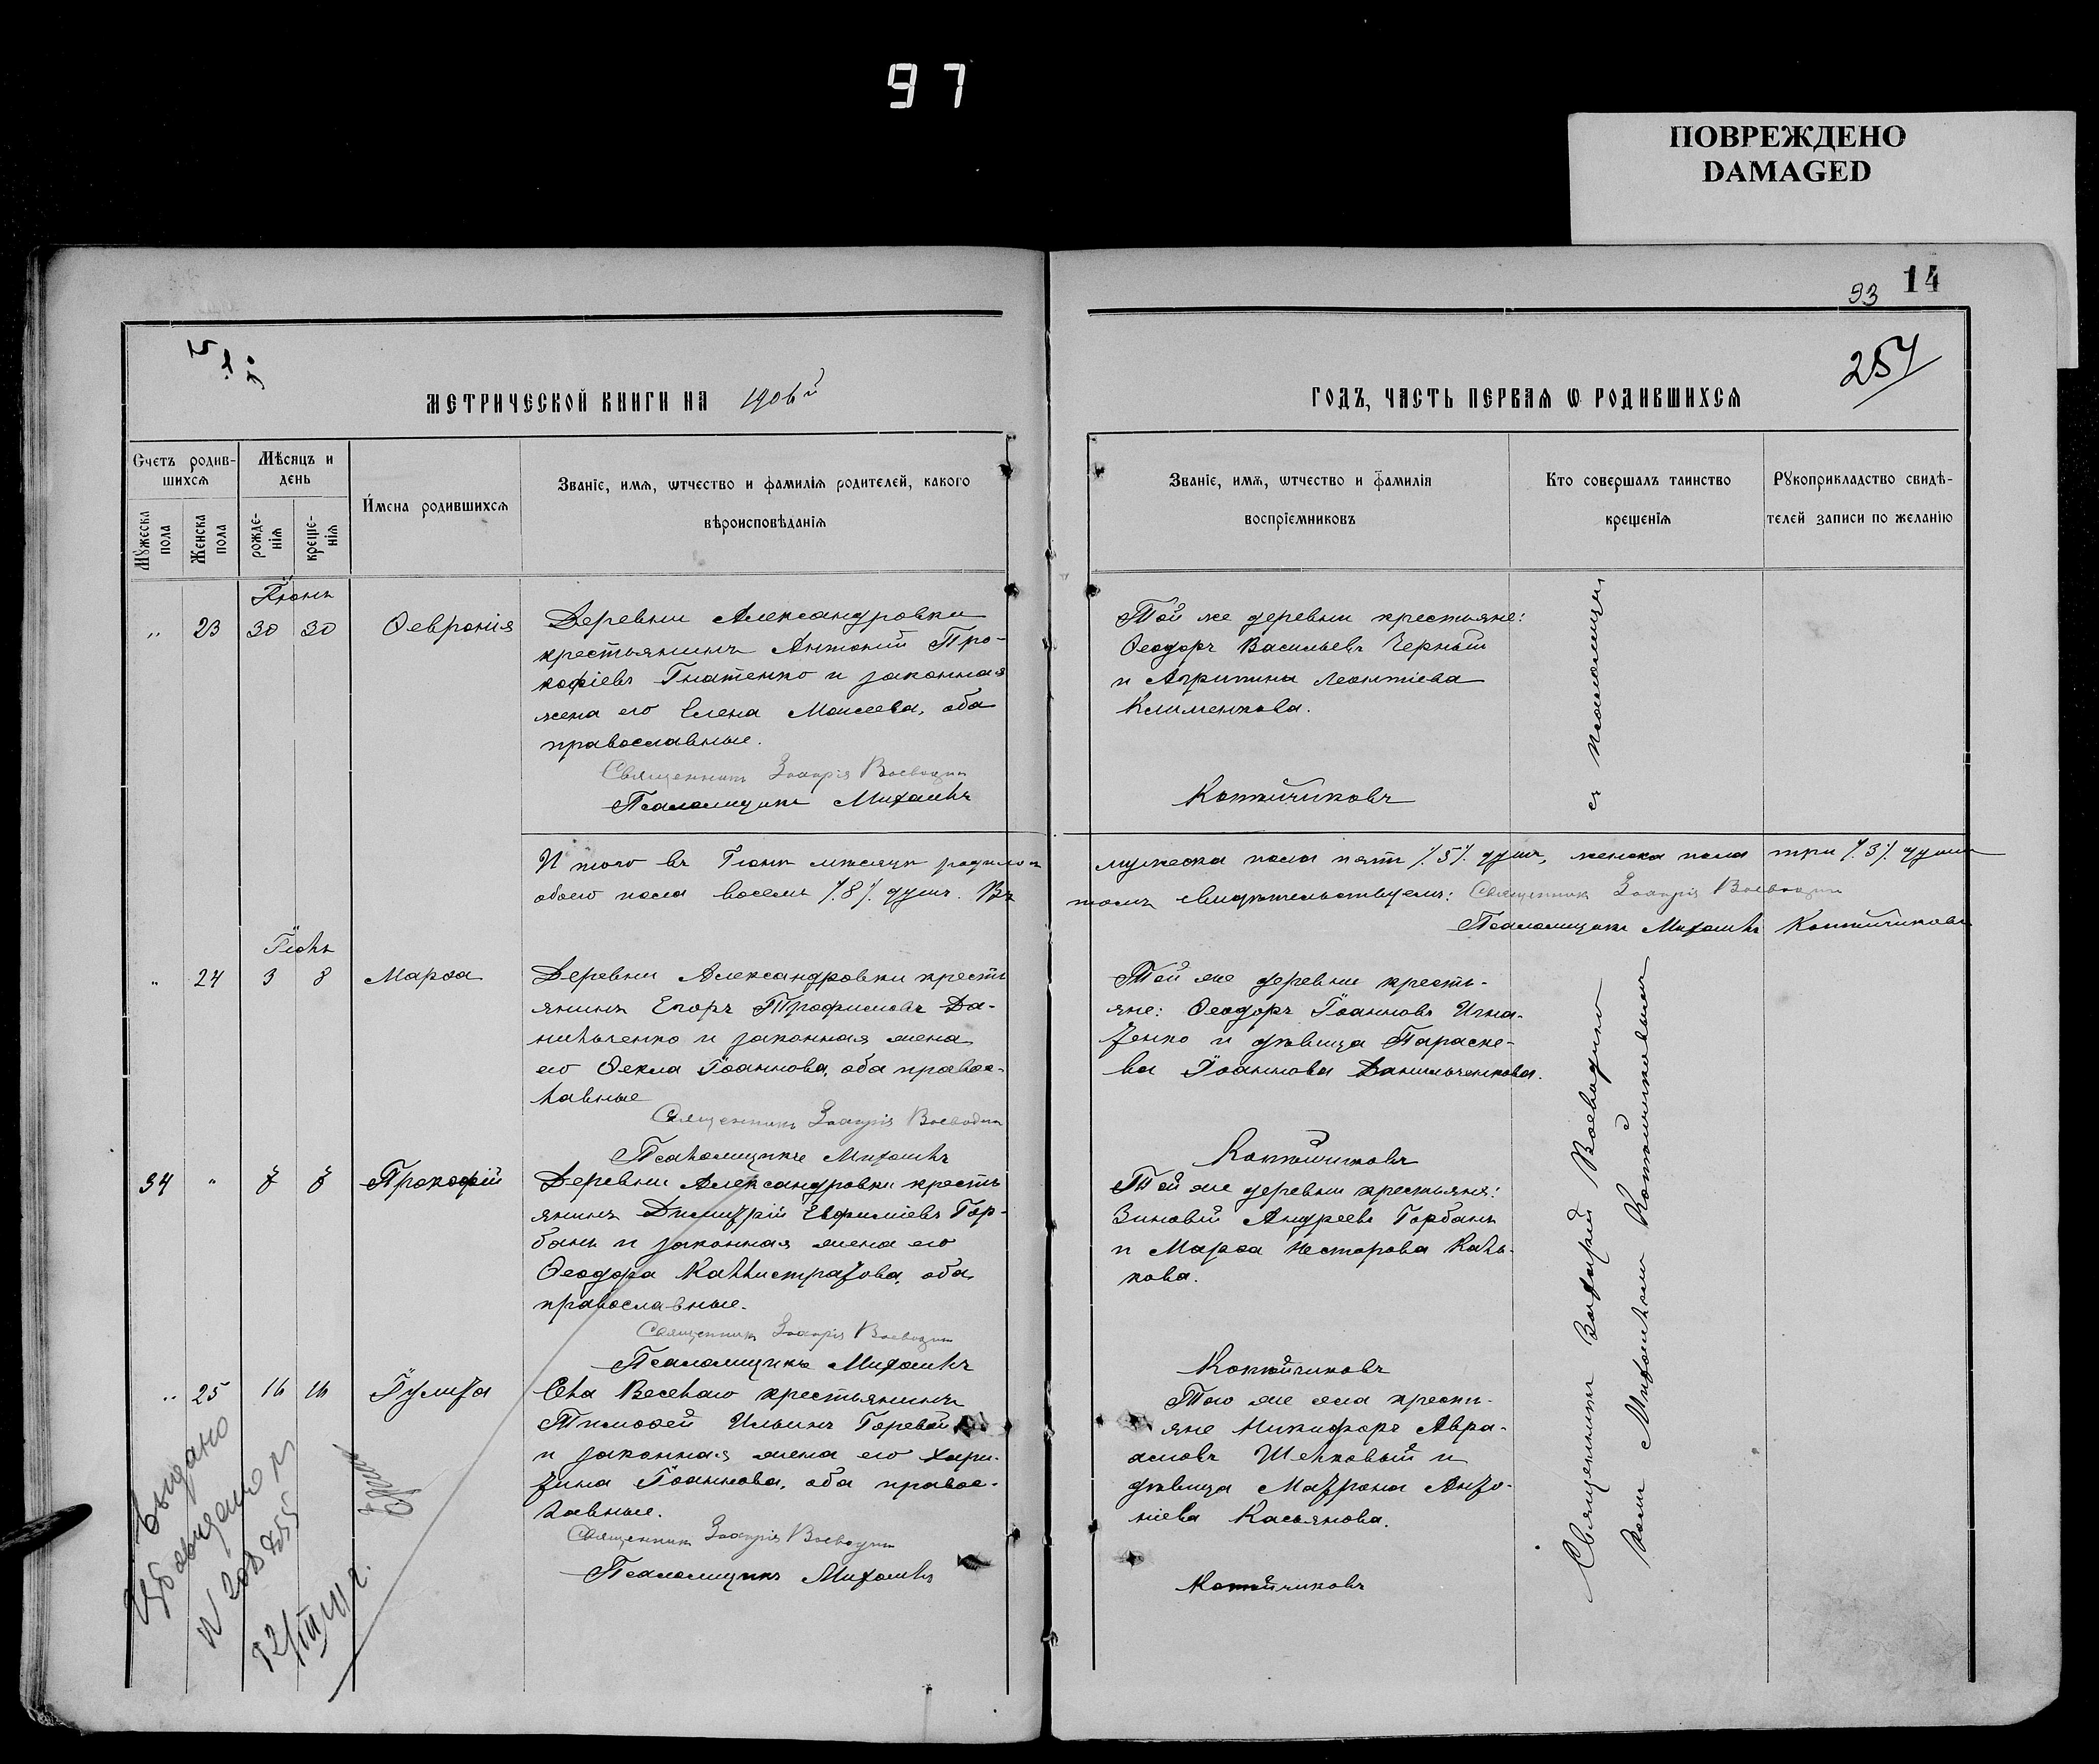 97
ПОВРЕЖДЕНО
DAMAGED
93 14
257
МЕТРИЧЕСКОЙ КНИГИ НА 1906й
ГОДЪ, ЧАСТЬ ПЕРВАЯ Ѡ РОДИВШИХСЯ
Счетъ родив-
шихся
Мужеска пола
Женска пола
Мѣсяцъ и
день
рожде-
нія
креще-
нія
Имена родившихся
Званіе, имя, ѡтчество и фамилія родителей, какого
вѣроисповѣданія
Званіе, имя, ѡтчество и фамилія
воспріемниковъ
Кто совершалъ таинство
крещенія
Рукоприкладство свидѣ-
телей записи по желанію
Іюнь
„ 23 30 30 Ѳевронія
Деревни Александровки
крестьянинъ Антоній Про-
кофіевъ Гнатенко и законная
жена его Елена Моисеева, оба
православные.
Священникъ Захарія Воеводин
Псаломщикъ Михаилъ
Той же деревни крестьяне:
Ѳеодоръ Васильевъ Черный
и Агрипина Леонтіева
Клименкова.
Котийчиковъ
съ псаломщи
И того въ Іюнѣ мѣсяцѣ родилось
обоего пола восемь /.8/. душъ. Въ
мужеска пола пять /.5/. душъ, женска пола три /.3/. души
томъ свидѣтельствуемъ: Священникъ Захарія Воеводин
Псаломщикъ Михаилъ Котийчиковъ
Іюль
„ 24 3 8 Марѳа
Деревни Александровки кресть
янинъ Егоръ Трофимовъ Да-
нильченко и законная жена
его Ѳекла Іоаннова, оба правос-
лавные
Священникъ Захарія Воеводин
Псаломщикъ Михаилъ
Той же деревни кресть-
яне: Ѳеодоръ Іоанновъ Игна-
тенко и дѣвица Параске-
ва Іоаннова Данильченкова.
Котийчиковъ
34 „ 7 8 Прокофій
Деревни Александровки кресть
янинъ Димитрій Евфиміевъ Гор-
бань и законная жена его
Ѳеодора Каллистратова, оба
православные.
Священникъ Захарія Воеводин
Псаломщикъ Михаилъ
Той же деревни крестьяне:
Зиновій Андреевъ Горбань
и Марѳа Несторова Каль-
кова.
Котийчиковъ
„ 25 16 16 Іулита
Села Веселаго крестьянинъ
Тимоѳей Ильинъ Горевой
и законная жена его Хари-
тина Іоаннова, оба правос-
лавные.
Священникъ Захарія Воеводин
Псаломщикъ Михаилъ
Того же села кресть-
яне Никифоръ Авра-
амовъ Шелковый и
дѣвица Матрона Анто-
ніева Касьянова.
Котийчиковъ
Священникъ Захарій Воеводинъ
комъ Михаиломъ Котийчиковымъ
выдано